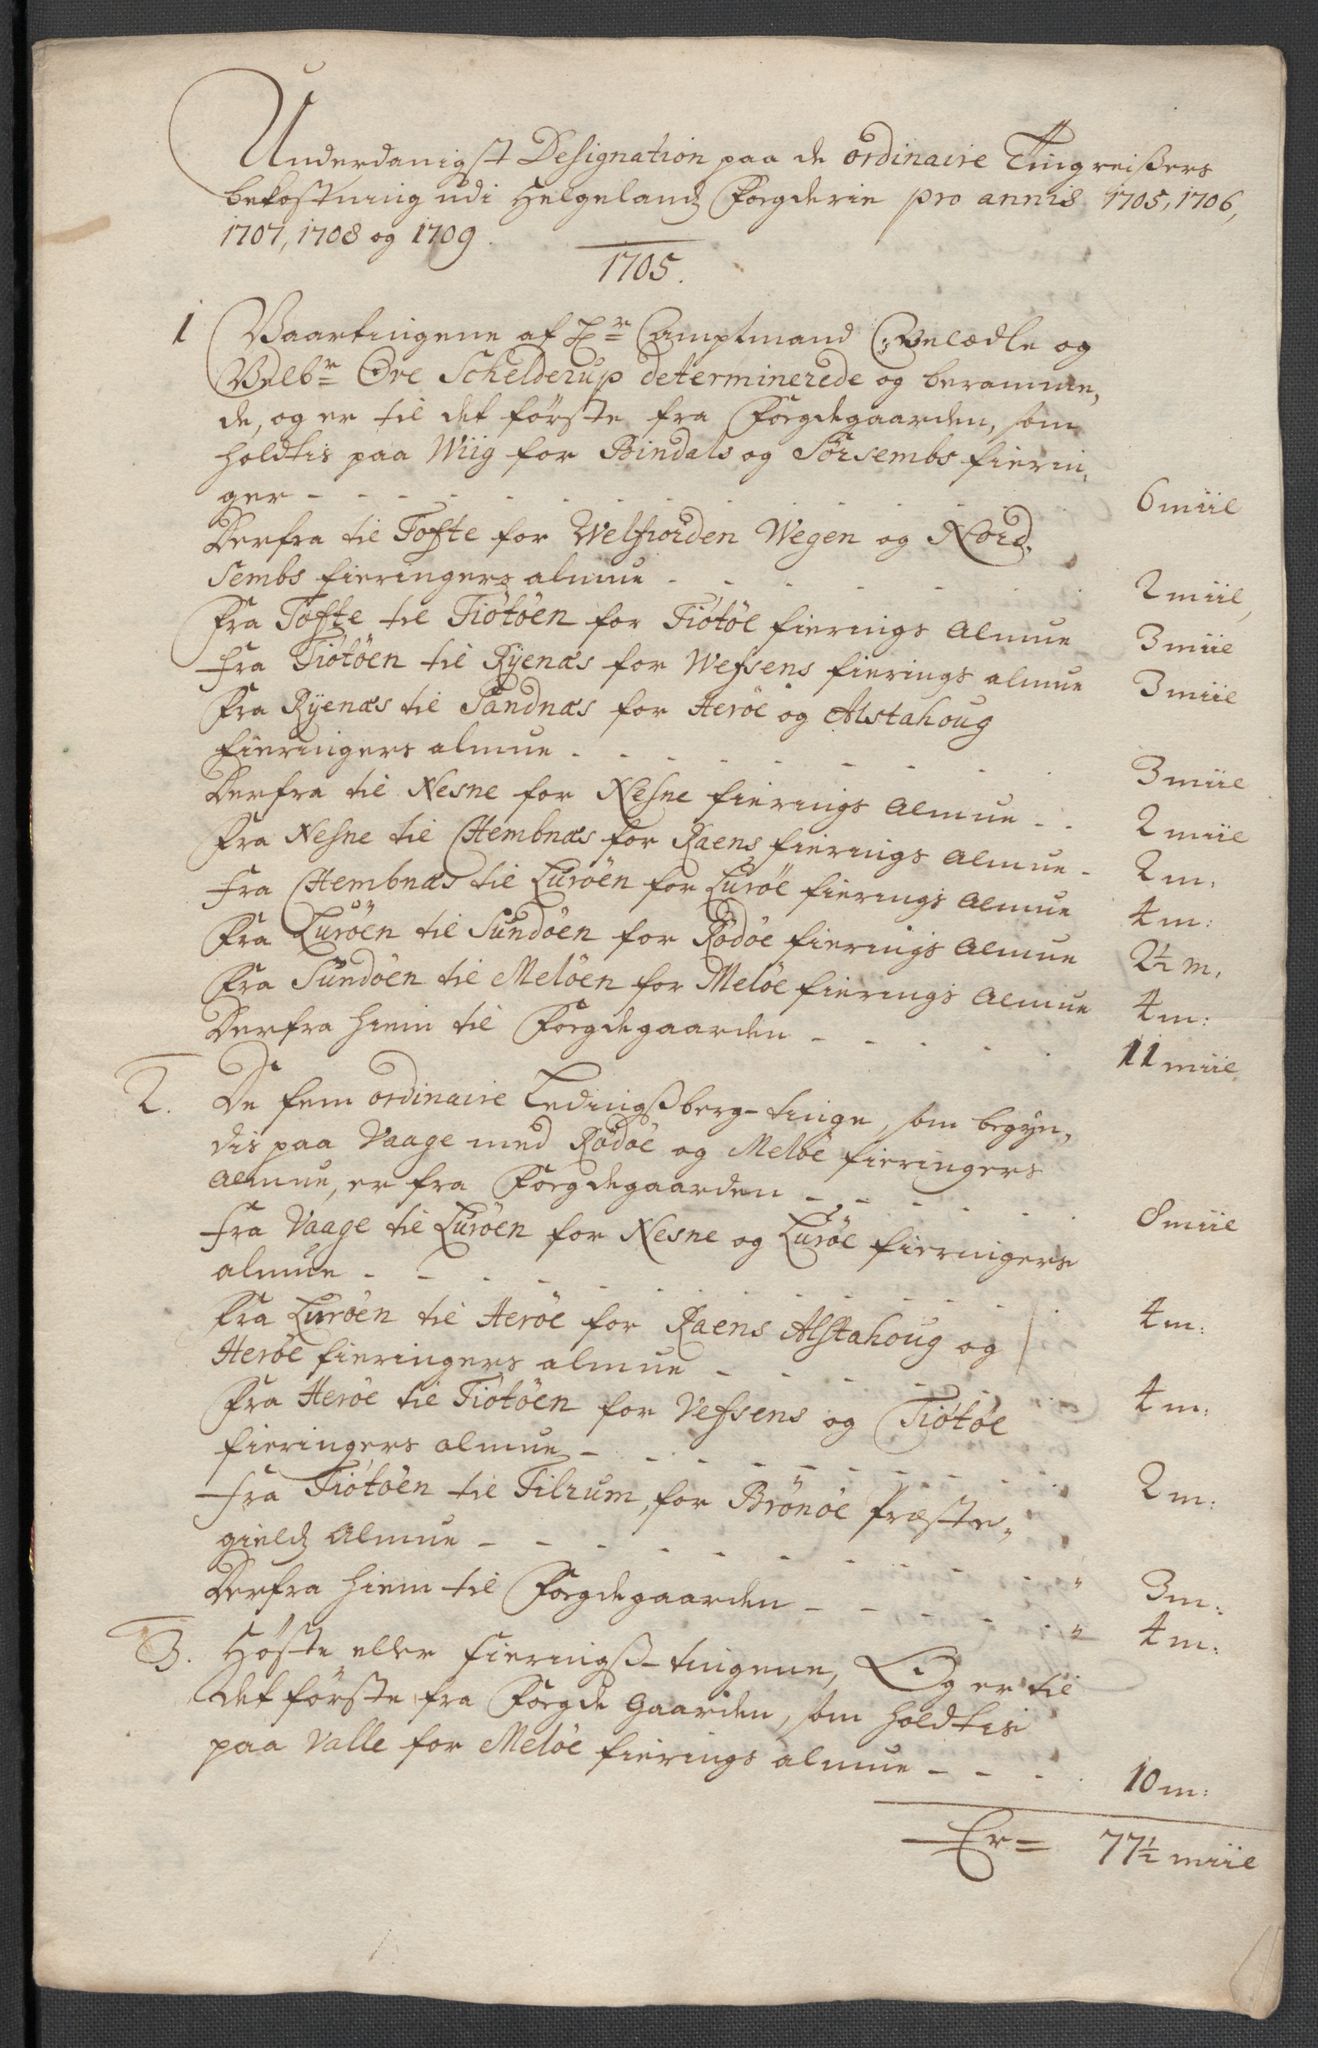 Underdanigst Designation paa de ordinaire Tingreißers
bekostning udi Helgelands Fogderie pro annis 1705, 1706,
1707, 1708 og 1709.
1705.
1 Vaartingene af Hr Amptmand Velædle og
Velbr Ove Schelderup determinerede og beramme,
de, og er til det første fra Fogdegaarden, som
holdtis paa Wiig for Bindals og Sörsembs fierin,
ger - - - - - - - 6 miil
Derfra til Tofte for Welfiorden Wegen og Nord,
sembs fieringers almue - - - - - 2 miil,
Fra Tofte til Tiötöen for Tiötöe fierings Almue 3 miil
Fra Tiötöen til Ryenæs for Wefsens fierings almue 3 miil
Fra Ryenæs til Sandnæs for Heröe og Alstahoug
fieringers almue - - - - - - 3 miil
Derfra til Nesne for Nesne fierings Almue - - 2 miil
Fra Nesne til Hembnæs for Raens fierings Almue - 2 m:
Fra Hembnæs til Luröen for Luröe fierings Almue 4 m:
Fra Luröen til Sundöen for Rödöe fierings Almue 2½ m,
Fra Sundöen til Melöen for Melöe fierings Almue 4 m:
Derfra hiem til Fogdegaarden - - - - - 11 miil
2. De fem ordinaire Ledingsberg-tinge, som begyn,
dis paa Vaage med Rödöe og Melöe fieringers
Almue, er fra Fogdegaarden - - - - 8 miil
Fra Vaage til Luröen for Nesne og Luröe fieringers
almue - - - - - - - 4 m:
Fra Luröen til Heröe for Raens Alstahoug og
Heröe fieringers almue - - - - - 4 m:
Fra Heröe til Tiötöen for Vefsens og Tiötöe
fieringers almue - - - - - - 2 m:
Fra Tiötöen til Tilrum, for Brönöe Præste,
gields Almue - - - - - - 3 m:
Derfra hiem til Fogdegaarden - - - - 4 m:
3. Höste eller fieringß-tingene, Og er til
det förste fra Fogde Gaarden, som holdtis
paa Valle for Melöe fierings almue - - - 10 m:
Er = 77½ miil